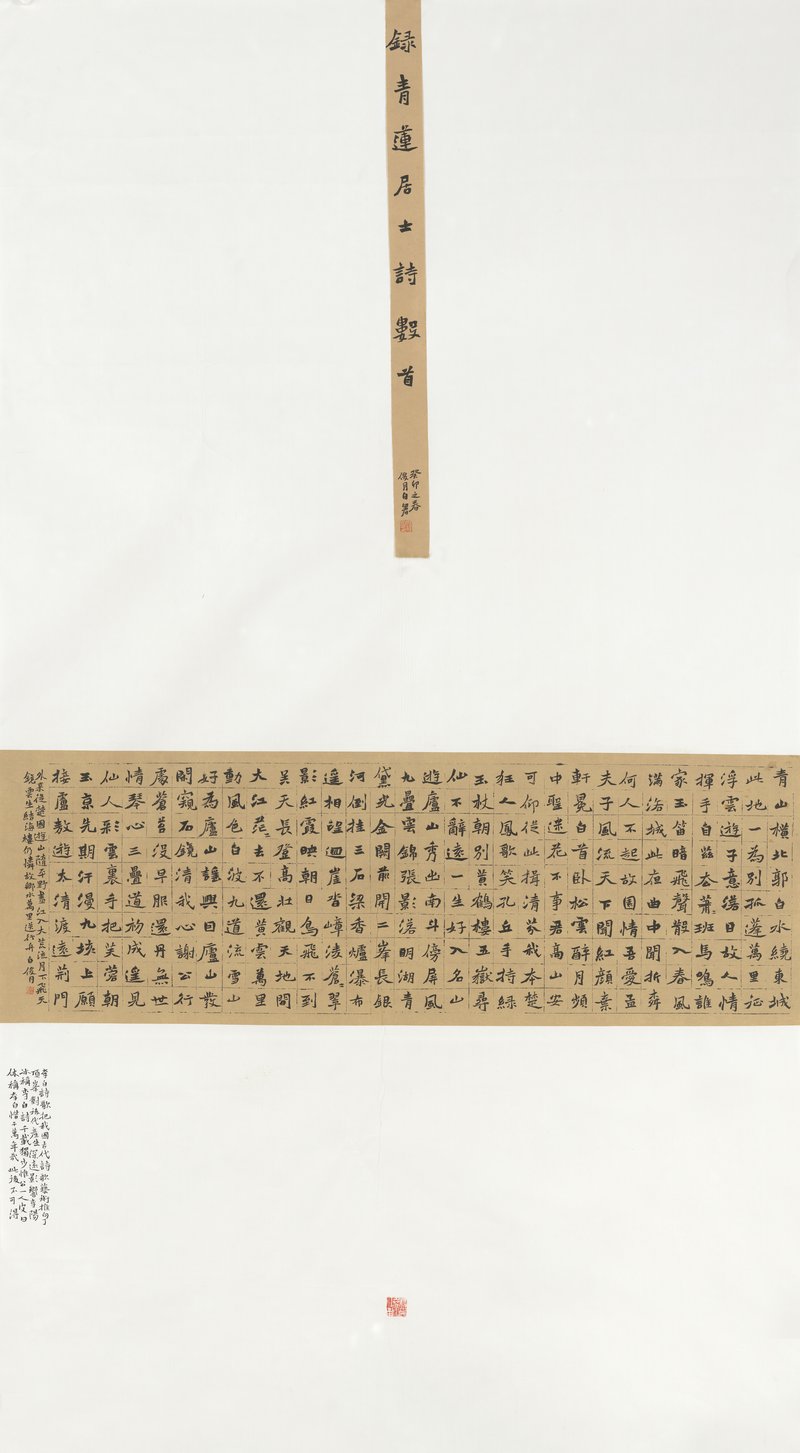 録青蓮居士詩數首
癸卯之春
俊月自署
青山橫北郭白水繞東城
此地一為別孤蓬萬里征
浮雲遊子意落日故人情
揮手自茲去蕭〻班馬鳴誰
家玉笛暗飛聲散入春風
滿洛城此夜曲中聞折桺
何人不起故園情吾愛孟
夫子風流天下聞紅顏棄
軒冕白首臥松雲醉月頻
中聖迷花不事君高山安
可仰從此揖清芬我本楚
狂人鳳歌笑孔丘手持綠
玉杖朝別黃鶴樓五嶽尋
仙不辭遠一生好入名山
遊廬山秀出南斗傍屏風
九疊雲錦張影落明湖青
黛光金闕前開二峯長銀
河倒挂三石梁香爐瀑布
遥相望迴崖沓嶂凌蒼〻翠
影紅霞映朝日鳥飛不到
吳天長登高壯觀天地間
大江茫〻去不還黃雲萬里
動風色白波九道流雪山
好為廬山謠興因廬山發
閒窺石鏡清我心謝公行
處蒼苔沒早服還丹無世
情琴心三疊道初成遥見
仙人彩雲裏手把芙蓉朝
玉京先期汗漫九垓上願
接盧敖遊太清渡遠荊門
外來從楚國遊山隨平野盡江入大荒流月下飛天
鏡雲生結海樓仍憐故鄉水萬里送行舟白俊月
李白詩歌把我國古代詩歌藝術推向了
頂峯對後代產生深遠影響李陽
冰稱李白詩千載獨步惟公一人皮日
休稱李白惜千萬年哉此後不可得